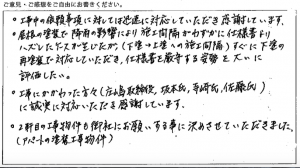 ご意見・ご感想をご自由にお書きください。
○工事中の依頼事項に対しては迅速に対応していただき感謝しています。
○屋根の塗装で降雨の影響により施工間隔がわずかに仕様書より
ハズしたケースが生じたが(下塗→上塗への施工間隔)すぐに下塗の
再塗装で対応していただき、仕様書を厳守する姿勢を大いに
評価したい。
○工事にかかわった方々(広島取締役、坂本氏、寺崎氏、佐藤氏)
に誠実に対応いただき感謝しています。
○2軒目の工事物件も御社にお願いする事に決めさせていただきました。
(アパートの塗装工事物件)